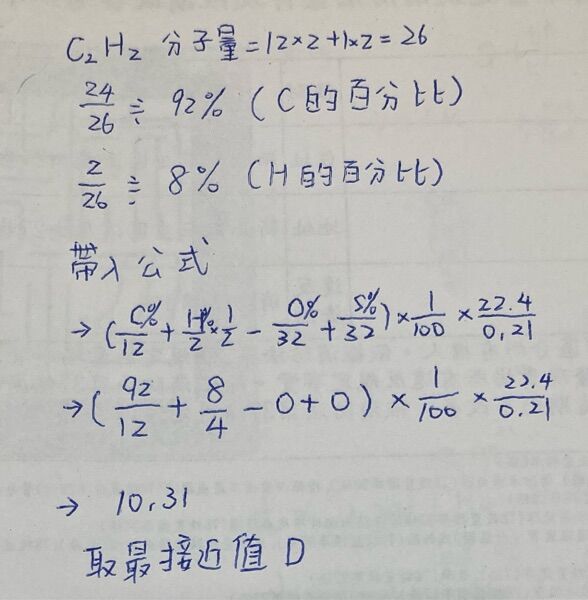 C₂H₂ 分子量=12×2+1×2=26
24/26 ≒ 92% (C的百分比)
2/26 ≒ 8% (H的百分比)
帶入公式
→ (C%/12 + H%/2 × 1/2 - O%/32 + S%/32) × 1/100 × 22.4/0.21
→ (92/12 + 8/4 - 0 + 0) × 1/100 × 22.4/0.21
→ 10.31
取最接近值 D